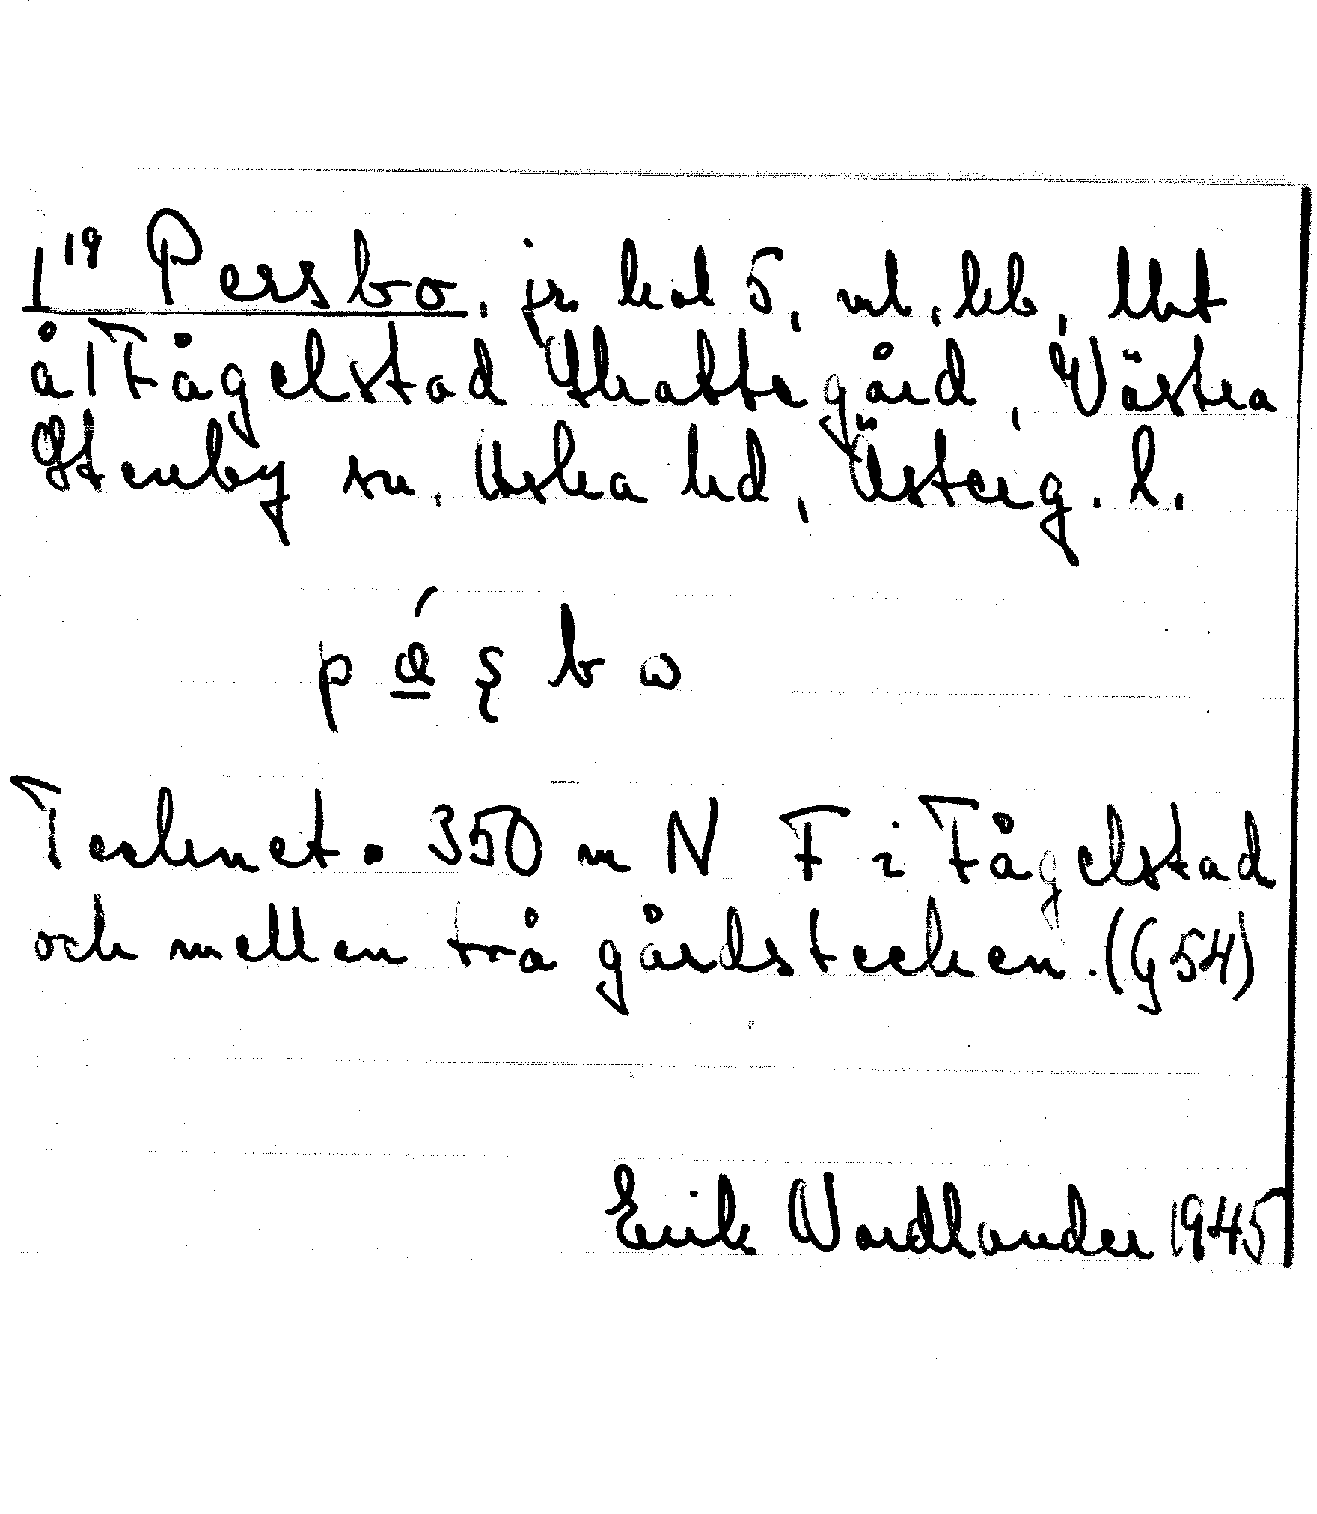 I¹⁹ Persbo, jr kol 5, vl, kb, lht
å Fågelstad Skattegård, Västra
Stenby sn, Aska hd, Österg. l.
p á̲ ş b ω
Tecknet ▪ 350 m N F i Fågelstad
och mellen två gårdstecken. (G 54)
Erik Wordlander 1945